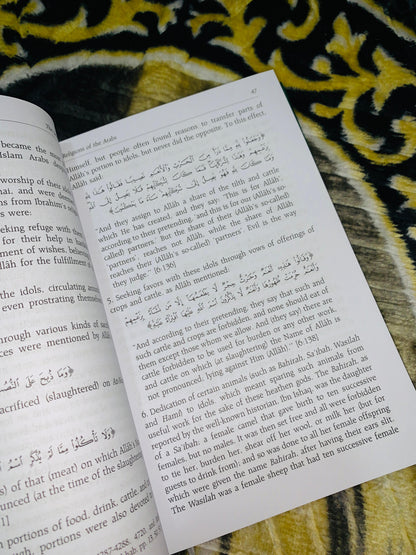 became the m
Islam Arabs de
worship of these id
hai, and were deeme
ns from Ibrahim's re
s were:
eeking refuge with the
for their help in ha
ment of wishes, believing
Allâh for the fulfillment of
the idols, circulating aro
even prostrating themselv
through various kinds of sac
ces were mentioned by Allâh
﴿وَمَا ذُبِحَ عَلَى النُّصُبِ
sacrificed (slaughtered) on An
﴿وَلَا تَأْكُلُوا مِمَّا لَمْ يُذْكَرِ اسْمُ
) of that (meat) on which Allâh's
unced (at the time of the slaughter
1]
n portions of food, drink, cattle, and c
gh, portions were also devoted to
4287-4288, 4720 an
Religions of the Arabs
47
himself, but people often found reasons to transfer parts of
Allâh's portion to idols, but never did the opposite. To this effect,
Allâh said:
﴿وَجَعَلُوا لِلَّهِ مِمَّا ذَرَأَ مِنَ الْحَرْثِ وَالْأَنْعَامِ نَصِيبًا فَقَالُوا هَذَا لِلَّهِ
بِزَعْمِهِمْ وَهَذَا لِشُرَكَائِنَا فَمَا كَانَ لِشُرَكَائِهِمْ فَلَا يَصِلُ إِلَى اللَّهِ
وَمَا كَانَ لِلَّهِ فَهُوَ يَصِلُ إِلَى شُرَكَائِهِمْ سَاءَ مَا يَحْكُمُونَ﴾
"And they assign to Allâh a share of the tilth and cattle
which He has created, and they say: 'This is for Allâh
according to their pretending, and this is for our (Allâh's so-
called) partners.' But the share of their (Allâh's so-called)
'partners', reaches not Allâh, while the share of Allâh
reaches their (Allâh's so-called) 'partners' Evil is the way
they judge." [6:136]
5. Seeking favors with these idols through vows of offerings of
crops and cattle, as Allâh mentioned:
﴿وَقَالُوا هَذِهِ أَنْعَامٌ وَحَرْثٌ حِجْرٌ لَا يَطْعَمُهَا إِلَّا مَنْ نَشَاءُ بِزَعْمِهِمْ
وَأَنْعَامٌ حُرِّمَتْ ظُهُورُهَا وَأَنْعَامٌ لَا يَذْكُرُونَ اسْمَ اللَّهِ عَلَيْهَا افْتِرَاءً عَلَيْهِ﴾
"And according to their pretending, they say that such and
such cattle and crops are forbidden, and none should eat of
them except those whom we allow. And (they say) there are
cattle forbidden to be used for burden or any other work,
and cattle on which (at slaughtering) the Name of Allâh is
not pronounced, lying against Him (Allâh)." [6:138]
6. Dedication of certain animals (such as Bahirah, Sa'ibah, Wasilah
and Hami) to idols, which meant sparing such animals from
useful work for the sake of these heathen gods. The Bahirah, as
reported by the well-known historian, Ibn Ishaq, was the daughter
of a Sa'ibah: a female camel that gave birth to ten successive
females, but no males. It was then set free and all were forbidden
to tie her, burden her, shear off her wool, or milk her (but for
guests to drink from); and so was done to all her female offspring
which were given the name Bahirah, after having their ears slit.
The Wasilah was a female sheep that had ten successive female